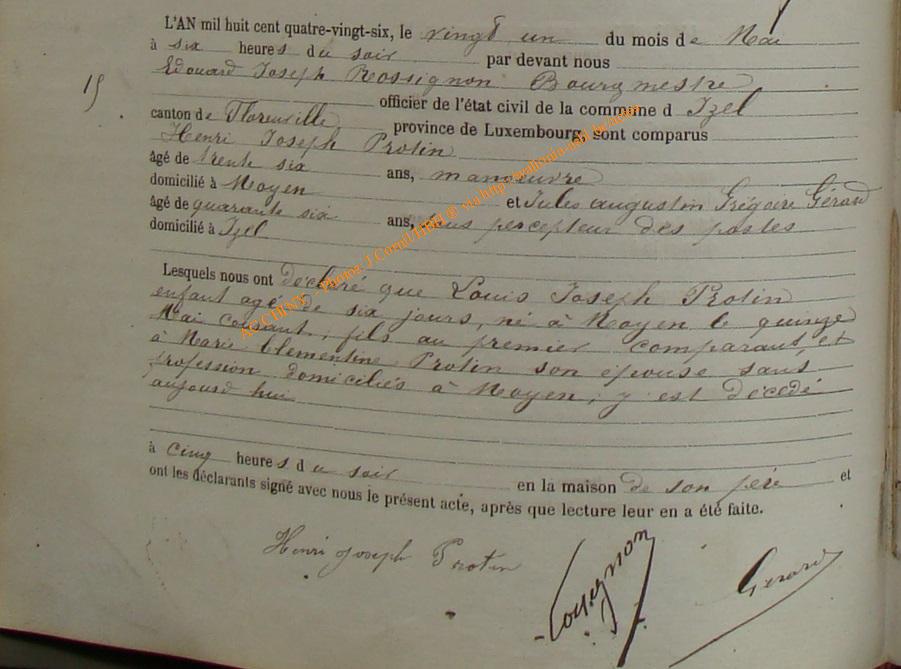 L'AN mil huit cent quatre-vingt-six, le vingt un du mois de Mai
à six heures du soir par devant nous
Edouard Joseph Rossignon Bourgmestre
15
officier de l'état civil de la commune d Izel
canton de Florenville province de Luxembourg, sont comparus
Henri Joseph Protin
âgé de trente six ans, manoeuvre
domicilié à Moyen et Jules Augustin Grégoire Gérard
âgé de quarante six ans, sous percepteur des postes
domicilié à Izel
Lesquels nous ont déclaré que Louis Joseph Protin
enfant agé de six jours, né à Moyen le quinze
Mai courant, fils au premier comparant, et
à Marie Clementine Protin son épouse sans
profession domiciliés à Moyen, y est décédé
aujourd hui
à cinq heures du soir en la maison de son père et
ont les déclarants signé avec nous le présent acte, après que lecture leur en a été faite.
Henri Joseph Protin
Rossignon
Gerard
ACCHINY - Photos J.Cornil HBH @ via http:/wallonia-asbl.be.com